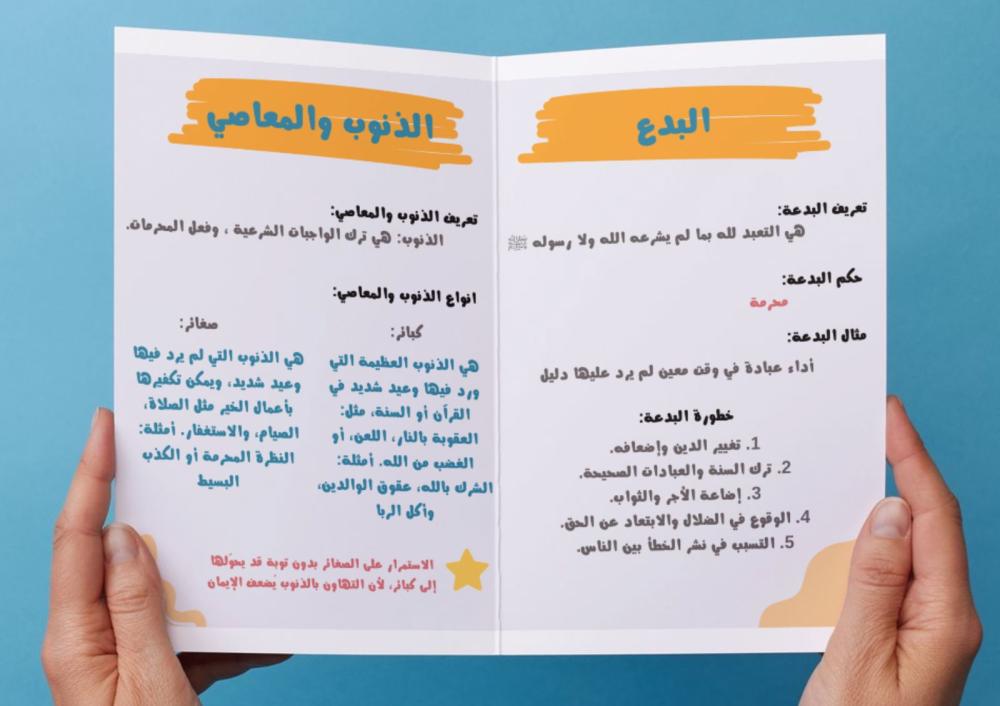 البدع
تعريف البدعة:
هي التعبد لله بما لم يشرعه الله ولا رسوله ﷺ
حكم البدعة:
محرمة
مثال البدعة:
أداء عبادة في وقت معين لم يرد عليها دليل
خطورة البدعة:
1. تغيير الدين وإضعافه.
2. ترك السنة والعبادات الصحيحة.
3. إضاعة الأجر والثواب.
4. الوقوع في الضلال والابتعاد عن الحق.
5. التسبب في نشر الخطأ بين الناس.
الذنوب والمعاصي
تعريف الذنوب والمعاصي:
الذنوب: هي ترك الواجبات الشرعية ، وفعل المحرمات.
انواع الذنوب والمعاصي:
كبائر:
هي الذنوب العظيمة التي
ورد فيها وعيد شديد في
القرآن أو السنة، مثل:
العقوبة بالنار، اللعن، أو
الغضب من الله. أمثلة:
الشرك بالله، عقوق الوالدين،
وأكل الربا
صغائر:
هي الذنوب التي لم يرد فيها
وعيد شديد، ويمكن تكفيرها
بأعمال الخير مثل الصلاة،
الصيام، والاستغفار. أمثلة:
النظرة المحرمة أو الكذب
البسيط
الاستمرار على الصغائر بدون توبة قد يحوّلها
إلى كبائر، لأن التهاون بالذنوب يُضعف الإيمان